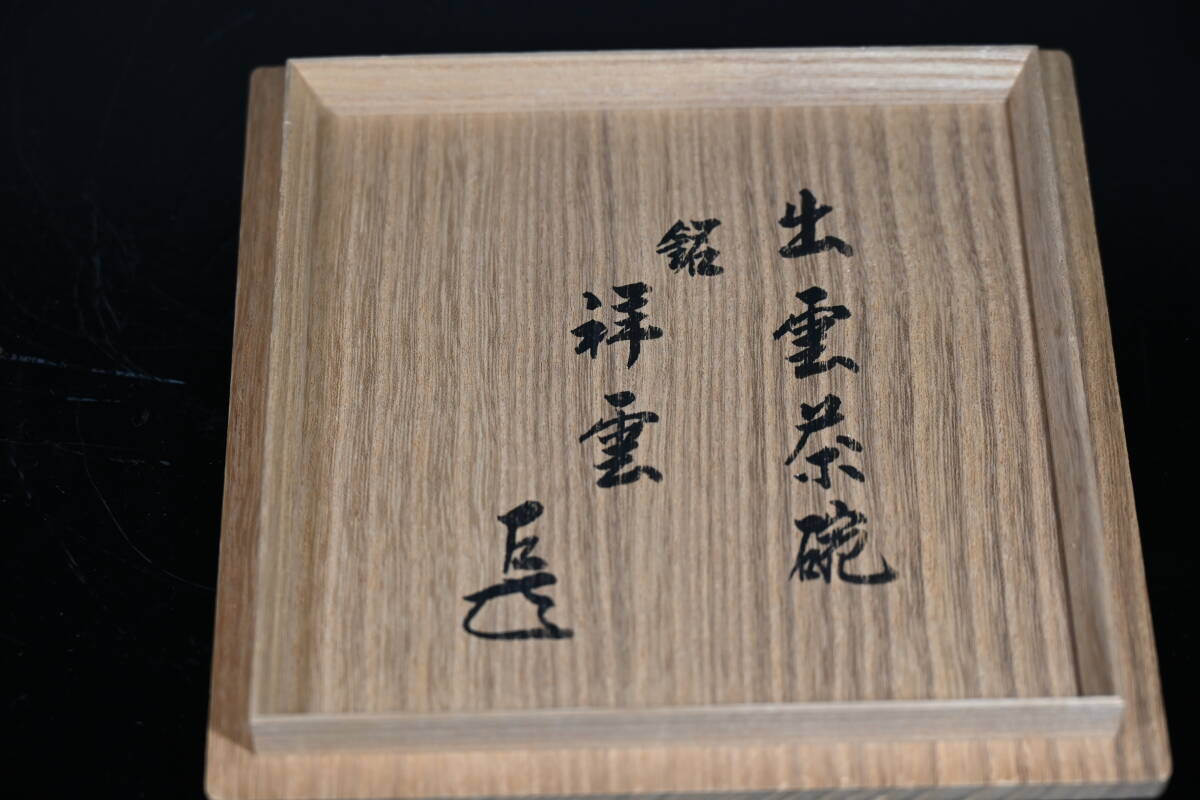 出雲茶碗
銘
祥雲